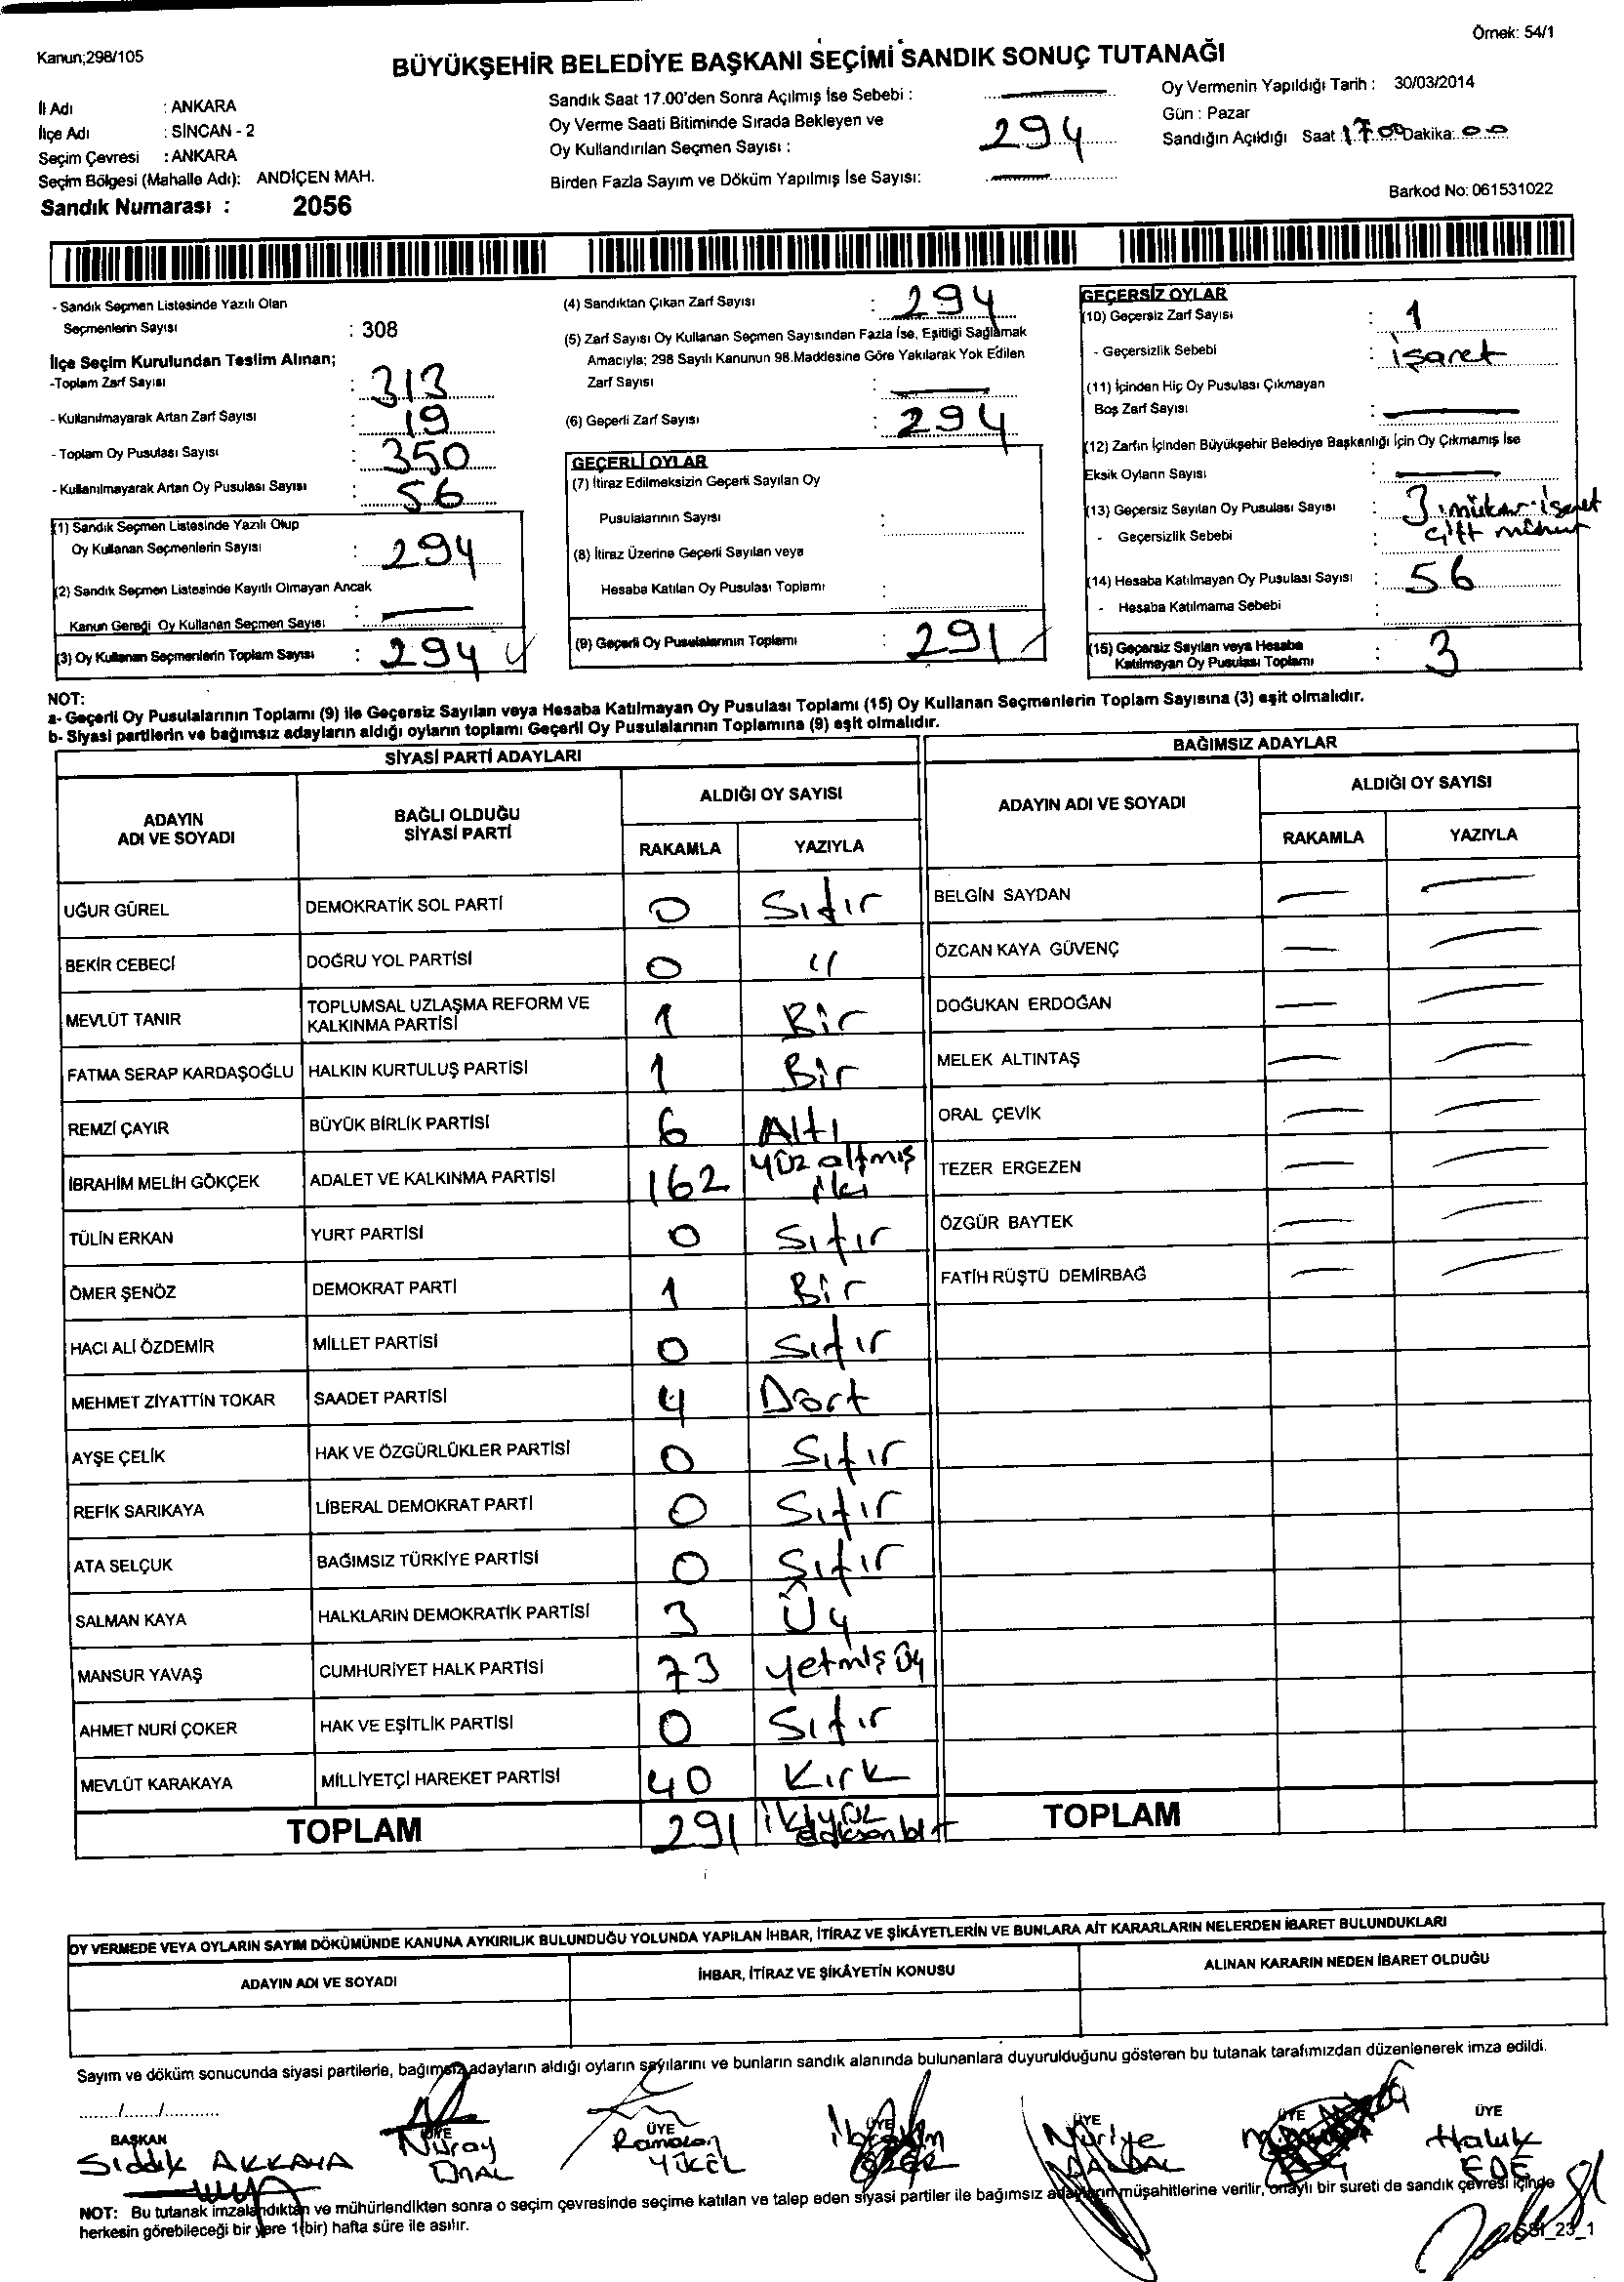 Örnek: 54/1
Kanun;298/105
BÜYÜKŞEHİR BELEDİYE BAŞKANI SEÇİMİ SANDIK SONUÇ TUTANAĞI
İl Adı : ANKARA
İlçe Adı : SİNCAN - 2
Seçim Çevresi : ANKARA
Seçim Bölgesi (Mahalle Adı): ANDİÇEN MAH.
Sandık Numarası : 2056
Sandık Saat 17.00'den Sonra Açılmış İse Sebebi :
Oy Verme Saati Bitiminde Sırada Bekleyen ve
Oy Kullandırılan Seçmen Sayısı : 294
Birden Fazla Sayım ve Döküm Yapılmış İse Sayısı:
Oy Vermenin Yapıldığı Tarih : 30/03/2014
Gün : Pazar
Sandığın Açıldığı Saat :17 00 Dakika: 00
Barkod No: 061531022
- Sandık Seçmen Listesinde Yazılı Olan
Seçmenlerin Sayısı : 308
İlçe Seçim Kurulundan Teslim Alınan;
-Toplam Zarf Sayısı : 313
- Kullanılmayarak Artan Zarf Sayısı : 19
- Toplam Oy Pusulası Sayısı : 350
- Kullanılmayarak Artan Oy Pusulası Sayısı : 56
(1) Sandık Seçmen Listesinde Yazılı Olup
Oy Kullanan Seçmenlerin Sayısı : 294
(2) Sandık Seçmen Listesinde Kayıtlı Olmayan Ancak
Kanun Gereği Oy Kullanan Seçmen Sayısı :
(3) Oy Kullanan Seçmenlerin Toplam Sayısı : 294
(4) Sandıktan Çıkan Zarf Sayısı : 294
(5) Zarf Sayısı Oy Kullanan Seçmen Sayısından Fazla İse, Eşitliği Sağlamak
Amacıyla; 298 Sayılı Kanunun 98.Maddesine Göre Yakılarak Yok Edilen
Zarf Sayısı :
(6) Geçerli Zarf Sayısı : 294
GEÇERLİ OYLAR
(7) İtiraz Edilmeksizin Geçerli Sayılan Oy
Pusulalarının Sayısı :
(8) İtiraz Üzerine Geçerli Sayılan veya
Hesaba Katılan Oy Pusulası Toplamı :
(9) Geçerli Oy Pusulalarının Toplamı : 291
GEÇERSİZ OYLAR
(10) Geçersiz Zarf Sayısı : 1
- Geçersizlik Sebebi : işaret
(11) İçinden Hiç Oy Pusulası Çıkmayan
Boş Zarf Sayısı :
(12) Zarfın İçinden Büyükşehir Belediye Başkanlığı İçin Oy Çıkmamış İse
Eksik Oyların Sayısı :
(13) Geçersiz Sayılan Oy Pusulası Sayısı : 3
- Geçersizlik Sebebi : çift mühür
(14) Hesaba Katılmayan Oy Pusulası Sayısı : 56
- Hesaba Katılmama Sebebi :
(15) Geçersiz Sayılan veya Hesaba
Katılmayan Oy Pusulası Toplamı : 3
NOT:
a- Geçerli Oy Pusulalarının Toplamı (9) ile Geçersiz Sayılan veya Hesaba Katılmayan Oy Pusulası Toplamı (15) Oy Kullanan Seçmenlerin Toplam Sayısına (3) eşit olmalıdır.
b- Siyasi partilerin ve bağımsız adayların aldığı oyların toplamı Geçerli Oy Pusulalarının Toplamına (9) eşit olmalıdır.
SİYASİ PARTİ ADAYLARI
ADAYIN ADI VE SOYADI BAĞLI OLDUĞU SİYASİ PARTİ ALDIĞI OY SAYISI
RAKAMLA YAZIYLA
UĞUR GÜREL DEMOKRATİK SOL PARTİ 0 Sıfır
BEKİR CEBECİ DOĞRU YOL PARTİSİ 0 "
MEVLÜT TANIR TOPLUMSAL UZLAŞMA REFORM VE KALKINMA PARTİSİ 1 Bir
FATMA SERAP KARDAŞOĞLU HALKIN KURTULUŞ PARTİSİ 1 Bir
REMZİ ÇAYIR BÜYÜK BİRLİK PARTİSİ 6 Altı
İBRAHİM MELİH GÖKÇEK ADALET VE KALKINMA PARTİSİ 162 yüz altmış iki
TÜLİN ERKAN YURT PARTİSİ 0 Sıfır
ÖMER ŞENÖZ DEMOKRAT PARTİ 1 Bir
HACI ALİ ÖZDEMİR MİLLET PARTİSİ 0 Sıfır
MEHMET ZİYATTİN TOKAR SAADET PARTİSİ 4 Dört
AYŞE ÇELİK HAK VE ÖZGÜRLÜKLER PARTİSİ 0 Sıfır
REFİK SARIKAYA LİBERAL DEMOKRAT PARTİ 0 Sıfır
ATA SELÇUK BAĞIMSIZ TÜRKİYE PARTİSİ 0 Sıfır
SALMAN KAYA HALKLARIN DEMOKRATİK PARTİSİ 3 Üç
MANSUR YAVAŞ CUMHURİYET HALK PARTİSİ 73 yetmiş üç
AHMET NURİ ÇOKER HAK VE EŞİTLİK PARTİSİ 0 Sıfır
MEVLÜT KARAKAYA MİLLİYETÇİ HAREKET PARTİSİ 40 Kırk
TOPLAM 291
BAĞIMSIZ ADAYLAR
ADAYIN ADI VE SOYADI ALDIĞI OY SAYISI
RAKAMLA YAZIYLA
BELGİN SAYDAN
ÖZCAN KAYA GÜVENÇ
DOĞUKAN ERDOĞAN
MELEK ALTINTAŞ
ORAL ÇEVİK
TEZER ERGEZEN
ÖZGÜR BAYTEK
FATİH RÜŞTÜ DEMİRBAĞ
TOPLAM
OY VERMEDE VEYA OYLARIN SAYIM DÖKÜMÜNDE KANUNA AYKIRILIK BULUNDUĞU YOLUNDA YAPILAN İHBAR, İTİRAZ VE ŞİKÂYETLERİN VE BUNLARA AİT KARARLARIN NELERDEN İBARET BULUNDUKLARI
ADAYIN ADI VE SOYADI İHBAR, İTİRAZ VE ŞİKÂYETİN KONUSU ALINAN KARARIN NEDEN İBARET OLDUĞU
Sayım ve döküm sonucunda siyasi partilerle, bağımsız adayların aldığı oyların sayılarını ve bunların sandık alanında bulunanlara duyurulduğunu gösteren bu tutanak tarafımızdan düzenlenerek imza edildi.
....../....../............
BAŞKAN ÜYE ÜYE ÜYE ÜYE ÜYE ÜYE
Sıddık AKKAYA Nuray ÜNAL Ramazan YÜCEL İbrahim Nuriye Haluk EDE
NOT: Bu tutanak imzalandıktan ve mühürlendikten sonra o seçim çevresinde seçime katılan ve talep eden siyasi partiler ile bağımsız adayların müşahitlerine verilir, onaylı bir sureti de sandık çevresi içinde
herkesin görebileceği bir yere 1(bir) hafta süre ile asılır.
SSI_23_1